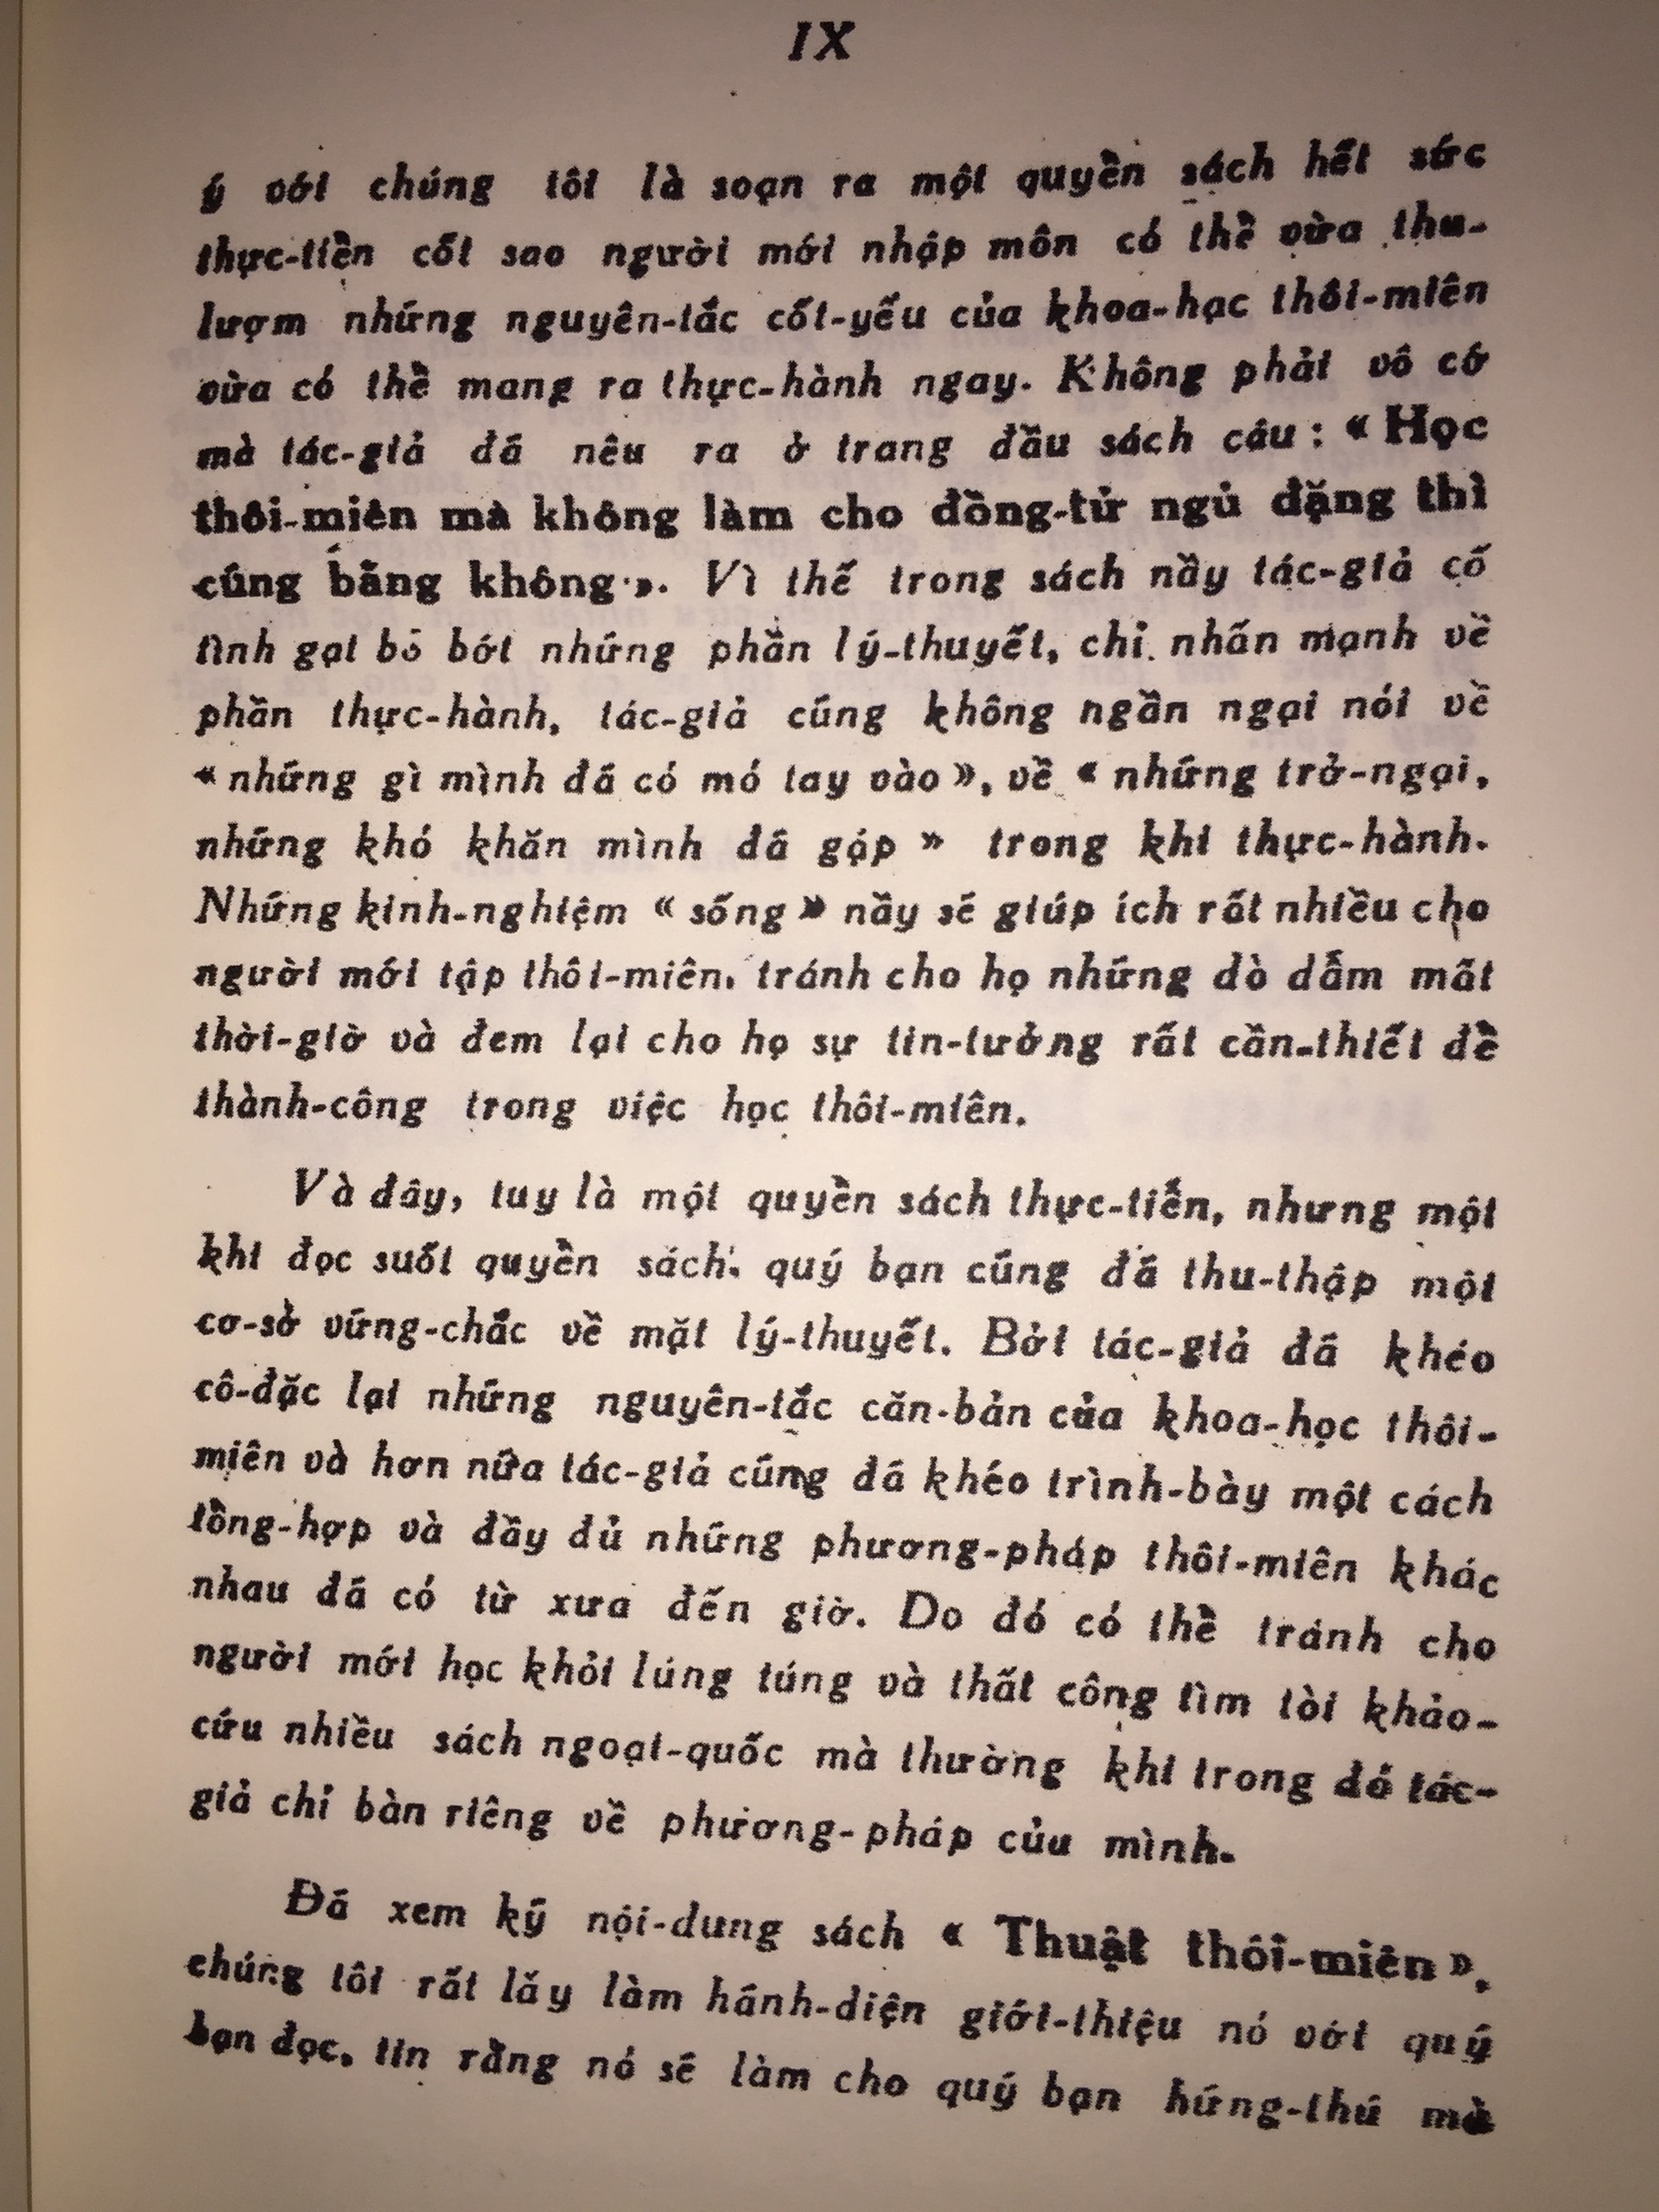 IX
ý với chúng tôi là soạn ra một quyền sách hết sức
thực-tiễn cốt sao người mới nhập môn có thể vừa thu-
lượm những nguyên-tắc cốt-yếu của khoa-hạc thôi-miên
vừa có thể mang ra thực-hành ngay. Không phải vô cớ
mà tác-giả đã nêu ra ở trang đầu sách câu : « Học
thôi-miên mà không làm cho đồng-tử ngủ đặng thì
cũng bằng không ». Vì thế trong sách nầy tác-giả cố
tình gạt bỏ bớt những phần lý-thuyết, chỉ nhấn mạnh về
phần thực-hành, tác-giả cũng không ngần ngại nói về
« những gì mình đã có mó tay vào », về « những trở-ngại,
những khó khăn mình đã gặp » trong khi thực-hành.
Những kinh-nghiệm « sống » nầy sẽ giúp ích rất nhiều cho
người mới tập thôi-miên, tránh cho họ những dò dẫm mất
thời-giờ và đem lại cho họ sự tin-tưởng rất cần-thiết để
thành-công trong việc học thôi-miên.
Và đây, tuy là một quyển sách thực-tiễn, nhưng một
khi đọc suốt quyển sách, quý bạn cũng đã thu-thập một
cơ-sở vững-chắc về mặt lý-thuyết. Bởi tác-giả đã khéo
cô-đặc lại những nguyên-tắc căn-bản của khoa-học thôi-
miên và hơn nữa tác-giả cũng đã khéo trình-bày một cách
tổng-hợp và đầy đủ những phương-pháp thôi-miên khác
nhau đã có từ xưa đến giờ. Do đó có thể tránh cho
người mới học khỏi lúng túng và thất công tìm tòi khảo-
cứu nhiều sách ngoại-quốc mà thường khi trong đó tác-
giả chỉ bàn riêng về phương-pháp của mình.
Đã xem kỹ nội-dung sách « Thuật thôi-miên »,
chúng tôi rất lấy làm hãnh-diện giới-thiệu nó với quý
bạn đọc, tin rằng nó sẽ làm cho quý bạn hứng-thú mà